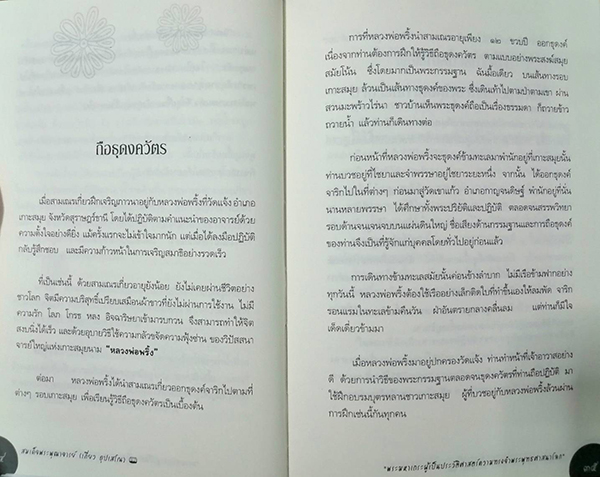 ถือธุดงควัตร
เมื่อสามเณรเกี่ยวฝึกเจริญภาวนาอยู่กับหลวงพ่อพริ้งที่วัดแจ้ง อำเภอ
เกาะสมุย จังหวัดสุราษฎร์ธานี โดยได้ปฏิบัติตามคำแนะนำของอาจารย์ด้วย
ความตั้งใจอย่างดียิ่ง แม้ครั้งแรกจะไม่เข้าใจมากนัก แต่เมื่อได้ลงมือปฏิบัติ
กลับรู้สึกชอบ และมีความก้าวหน้าในการเจริญสมาธิอย่างรวดเร็ว
ที่เป็นเช่นนี้ ด้วยสามเณรเกี่ยวอายุยังน้อย ยังไม่เคยผ่านชีวิตอย่าง
ชาวโลก จิตมีความบริสุทธิ์เปรียบเสมือนผ้าขาวที่ยังไม่ผ่านการใช้งาน ไม่มี
ความรัก โลภ โกรธ หลง อิจฉาริษยาเข้ามารบกวน จึงสามารถทำให้จิต
สงบนิ่งได้เร็ว และด้วยอุบายวิธีใช้ความกลัวขจัดความฟุ้งซ่าน ของวิปัสสนา
จารย์ใหญ่แห่งเกาะสมุยนาม "หลวงพ่อพริ้ง"
ต่อมา หลวงพ่อพริ้งได้นำสามเณรเกี่ยวออกธุดงค์จาริกไปตามที่
ต่างๆ รอบเกาะสมุย เพื่อเรียนรู้วิธีถือธุดงควัตรเป็นเบื้องต้น
สมเด็จพระพุฒาจารย์ (เกี่ยว อุปเสโณ)
การที่หลวงพ่อพริ้งนำสามเณรอายุเพียง ๑๒ ขวบปี ออกธุดงค์
เนื่องจากท่านต้องการฝึกให้รู้วิธีถือธุดงควัตร ตามแบบอย่างพระสงฆ์สมุย
สมัยโน้น ซึ่งโดยมากเป็นพระกรรมฐาน ฉันมื้อเดียว บนเส้นทางรอบ
เกาะสมุย ล้วนเป็นเส้นทางธุดงค์ของพระ ซึ่งเดินเท้าไปตามป่าตามเขา ผ่าน
สวนมะพร้าวไร่นา ชาวบ้านเห็นพระธุดงค์ถือเป็นเรื่องธรรมดา ก็ถวายข้าว
ถวายน้ำ แล้วท่านก็เดินทางต่อ
ก่อนหน้าที่หลวงพ่อพริ้งจะธุดงค์ข้ามทะเลมาพำนักอยู่ที่เกาะสมุยนั้น
ท่านบวชอยู่ที่ไชยาและจำพรรษาอยู่ไชยาระยะหนึ่ง จากนั้น ได้ออกธุดงค์
จาริกไปในที่ต่างๆ ก่อนมาสู่วัดเขาแก้ว อำเภอกาญจนดิษฐ์ พำนักอยู่ที่นั่น
นานหลายพรรษา ได้ศึกษาทั้งพระปริยัติและปฏิบัติ ตลอดจนสรรพวิทยา
รอบด้านจนเจนจบบนแผ่นดินใหญ่ ชื่อเสียงด้านกรรมฐานและการถือธุดงค์
ของท่านจึงเป็นที่รู้จักแก่บุคคลโดยทั่วไปอยู่ก่อนแล้ว
การเดินทางข้ามทะเลสมัยนั้นค่อนข้างลำบาก ไม่มีเรือข้ามฟากอย่าง
ทุกวันนี้ หลวงพ่อพริ้งต้องใช้เรืออย่างเล็กติดใบที่ทำขึ้นเองให้ลมพัด จาริก
รอนแรมในทะเลข้ามคืนวัน ฝ่าอันตรายกลางคลื่นลม แต่ท่านก็มีใจ
เด็ดเดี่ยวข้ามมา
เมื่อหลวงพ่อพริ้งมาอยู่ปกครองวัดแจ้ง ท่านทำหน้าที่เจ้าอาวาสอย่าง
ดี ด้วยการนำวิธีของพระกรรมฐานตลอดจนธุดงควัตรที่ท่านถือปฏิบัติ มา
ใช้ฝึกอบรมบุตรหลานชาวเกาะสมุย ผู้ที่บวชอยู่กับหลวงพ่อพริ้งล้วนผ่าน
การฝึกเช่นนี้กันทุกคน
๓๕